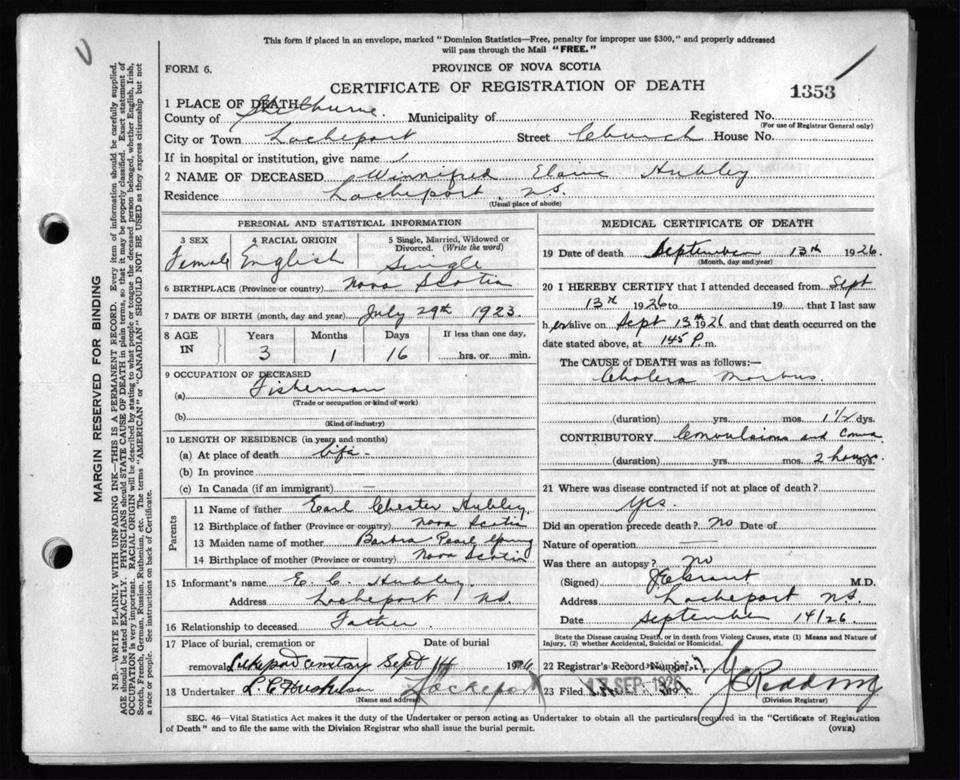 This form if placed in an envelope, marked "Dominion Statistics—Free, penalty for improper use $300," and properly addressed
will pass through the Mail "FREE."
FORM 6.
PROVINCE OF NOVA SCOTIA
CERTIFICATE OF REGISTRATION OF DEATH
1353
MARGIN RESERVED FOR BINDING
N.B.—WRITE PLAINLY WITH UNFADING INK—THIS IS A PERMANENT RECORD. Every item of information should be carefully supplied.
AGE should be stated EXACTLY. PHYSICIANS should STATE CAUSE OF DEATH in plain terms, so that it may be properly classified. Exact statement of
OCCUPATION is very important. RACIAL ORIGIN will be described by stating to what people or tongue the deceased person belonged, whether English, Irish,
Scotch, French, German, Russian, Ruthenian, etc. The terms "AMERICAN" or "CANADIAN" SHOULD NOT BE USED as they express citizenship but not
a race or people. See instructions on back of Certificate.
1 PLACE OF DEATH
County of Shelburne. Municipality of Registered No.
(For use of Registrar General only)
City or Town Lockeport Street Church House No.
If in hospital or institution, give name
2 NAME OF DECEASED Winnifred Elaine Hubley
Residence Lockeport N.S.
(Usual place of abode)
PERSONAL AND STATISTICAL INFORMATION
3 SEX 4 RACIAL ORIGIN 5 Single, Married, Widowed or
Divorced. (Write the word)
Female English Single
6 BIRTHPLACE (Province or country) Nova Scotia
7 DATE OF BIRTH (month, day and year) July 29th 1923.
8 AGE IN Years Months Days If less than one day,
3 1 16 hrs. or min.
9 OCCUPATION OF DECEASED
(a) Fisherman
(Trade or occupation or kind of work)
(b)
(Kind of industry)
10 LENGTH OF RESIDENCE (in years and months)
(a) At place of death life
(b) In province
(c) In Canada (if an immigrant)
Parents
11 Name of father Earl Chester Hubley
12 Birthplace of father (Province or country) Nova Scotia
13 Maiden name of mother Barbra Pearl Young
14 Birthplace of mother (Province or country) Nova Scotia
15 Informant's name E. C. Hubley
Address Lockeport N.S.
16 Relationship to deceased Father
17 Place of burial, cremation or Date of burial
removal Lockeport Cemetery Sept 14 1926
18 Undertaker L. C. Lockeport
(Name and address)
MEDICAL CERTIFICATE OF DEATH
19 Date of death September 13th 1926.
(Month, day and year)
20 I HEREBY CERTIFY that I attended deceased from Sept
13th 1926 to 19 that I last saw
h er alive on Sept 13th 1926 and that death occurred on the
date stated above, at 145 P. m.
The CAUSE of DEATH was as follows:—
Cholera Morbus.
(duration) yrs. mos. 1 1/2 dys.
CONTRIBUTORY Convulsions and Coma
(duration) yrs. mos. 2 hours dys.
21 Where was disease contracted if not at place of death?
Yes.
Did an operation precede death? No Date of
Nature of operation
Was there an autopsy? No
(Signed) J C Grant M.D.
Address Lockeport N.S.
Date September 14/26.
State the Disease causing Death, or in death from Violent Causes, state (1) Means and Nature of
Injury, (2) whether Accidental, Suicidal or Homicidal.
22 Registrar's Record Number
23 Filed 17 SEP 1926
(Division Registrar)
SEC. 46—Vital Statistics Act makes it the duty of the Undertaker or person acting as Undertaker to obtain all the particulars required in the "Certificate of Registration
of Death" and to file the same with the Division Registrar who shall issue the burial permit.
(OVER)